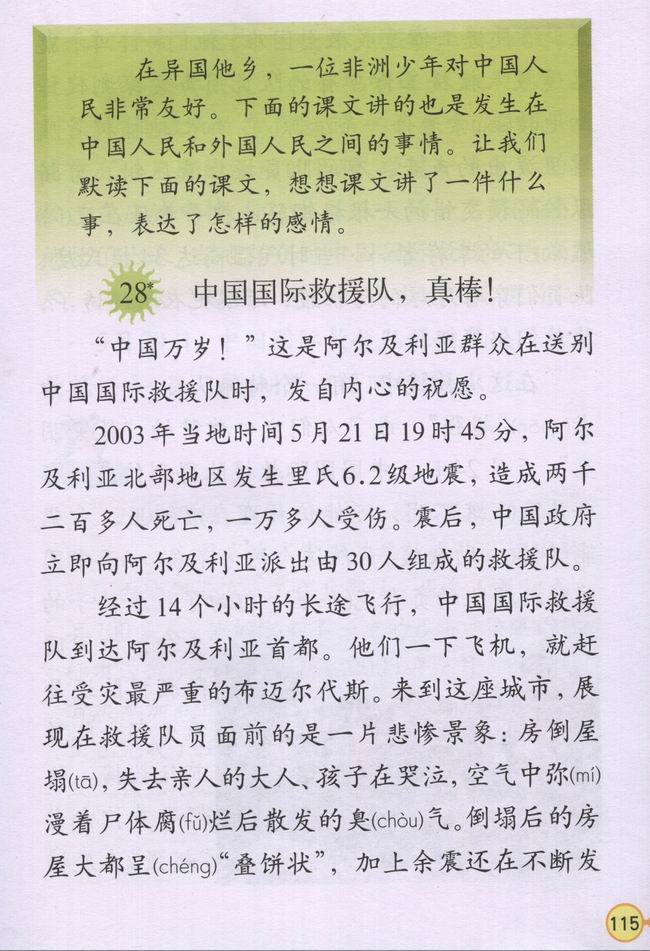 在异国他乡，一位非洲少年对中国人
民非常友好。下面的课文讲的也是发生在
中国人民和外国人民之间的事情。让我们
默读下面的课文，想想课文讲了一件什么
事，表达了怎样的感情。
28* 中国国际救援队，真棒！
“中国万岁！”这是阿尔及利亚群众在送别
中国国际救援队时，发自内心的祝愿。
2003年当地时间5月21日19时45分，阿尔
及利亚北部地区发生里氏6.2级地震，造成两千
二百多人死亡，一万多人受伤。震后，中国政府
立即向阿尔及利亚派出由30人组成的救援队。
经过14个小时的长途飞行，中国国际救援
队到达阿尔及利亚首都。他们一下飞机，就赶
往受灾最严重的布迈尔代斯。来到这座城市，展
现在救援队员面前的是一片悲惨景象：房倒屋
塌(tā)，失去亲人的大人、孩子在哭泣，空气中弥(mí)
漫着尸体腐(fǔ)烂后散发的臭(chòu)气。倒塌后的房
屋大都呈(chéng)“叠饼状”，加上余震还在不断发
115